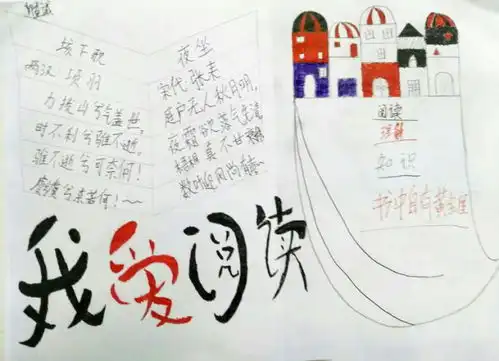 垓下歌
两汉 项羽
力拔山兮气盖世,
时不利兮骓不逝,
骓不逝兮可奈何!
虞兮虞兮奈若何!
夜坐
宋代 张耒
庭户无人秋月明,
夜霜欲落气先清
梧桐真不甘
数叶迎风尚有声
阅读
知识
书中自有黄金屋
我爱阅读